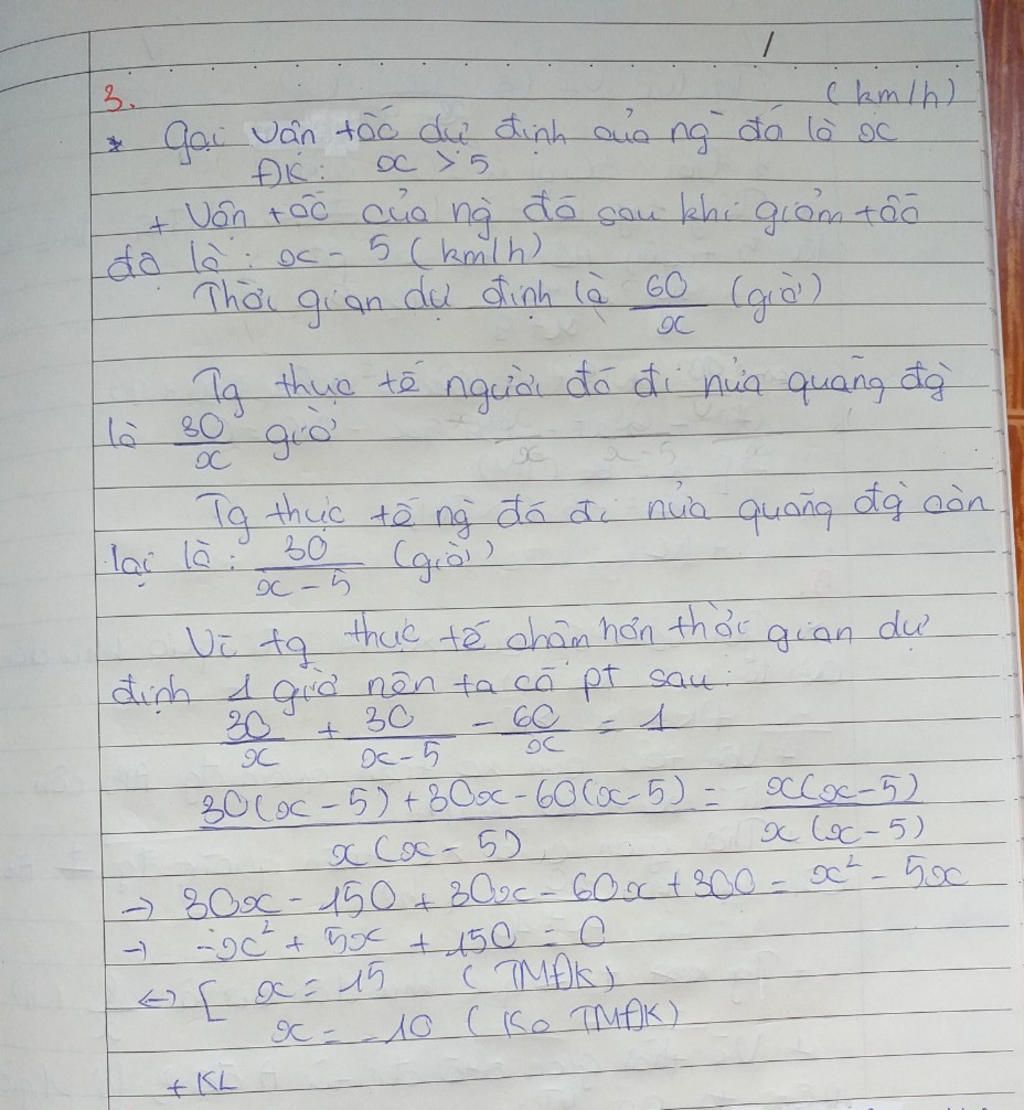 3.
(km/h)
* Gọi vận tốc dự định của ng̀ đó là x
ĐK: x > 5
+ Vận tốc của ng̀ đó sau khi giảm tốc
độ là: x - 5 (km/h)
Thời gian dự định là 60/x (giờ)
Tg thực tế người đó đi nửa quãng đg̀
là 30/x giờ
Tg thực tế ng̀ đó đi nửa quãng đg̀ còn
lại là: 30/(x-5) (giờ)
Vì tg thực tế chậm hơn thời gian dự
định 1 giờ nên ta có pt sau:
30/x + 30/(x-5) - 60/x = 1
(30(x-5)+30x-60(x-5))/(x(x-5)) = (x(x-5))/(x(x-5))
→ 30x - 150 + 30x - 60x + 300 = x² - 5x
→ -x² + 5x + 150 = 0
↔ [ x = 15 (TMĐK)
x = -10 (Ko TMĐK)
+ KL